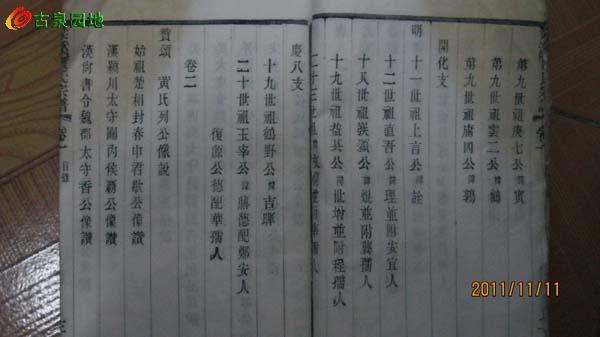 古泉园地
第九世祖庚七公諱寅
第九世祖雲二公諱鶴
第九世祖庸國公諱鶚
開化支
明
十一世祖上言公諱銓
十二世祖直吾公諱理並附安宜人
十八世祖公諱焜並附龔孺人
十九世祖益其公諱世增並附程孺人
二十三世祖
慶八支
十九世祖鶴野公諱吉暉
二十世祖玉宰公諱勝德配鄭安人
復源公德配華孺人
卷二
贊頌 黃氏列公像說
始祖楚相封春申君歇公像讚
漢潁川太守關內侯霸公像讚
漢尚書令魏郡太守香公像讚
宗譜 卷一 目錄
2011/11/11